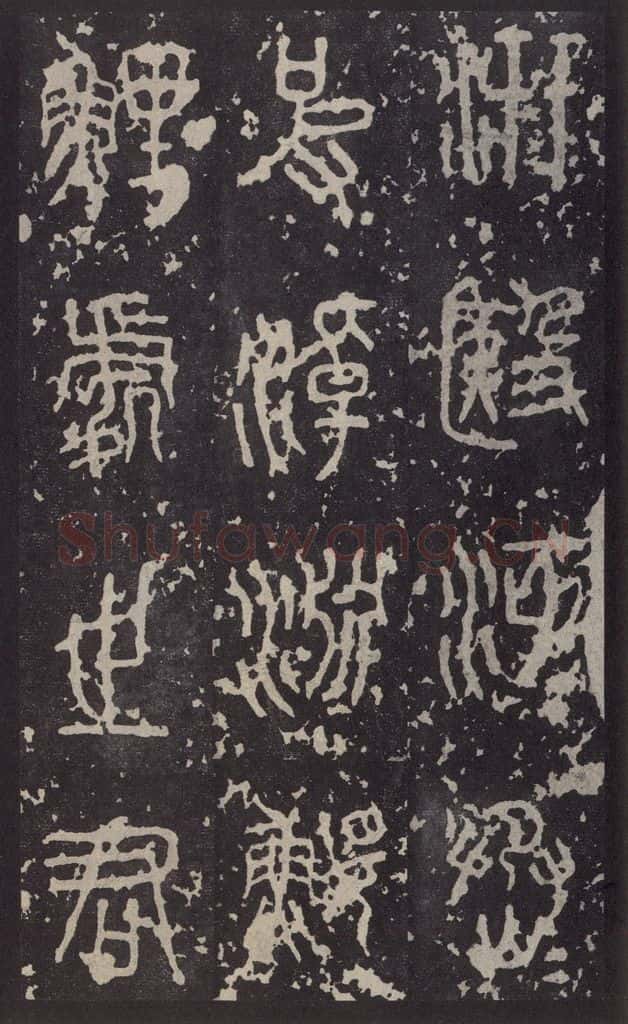 汧殹沔丞
皮淖淵鰋
鯉處之君
Shufawang.CN